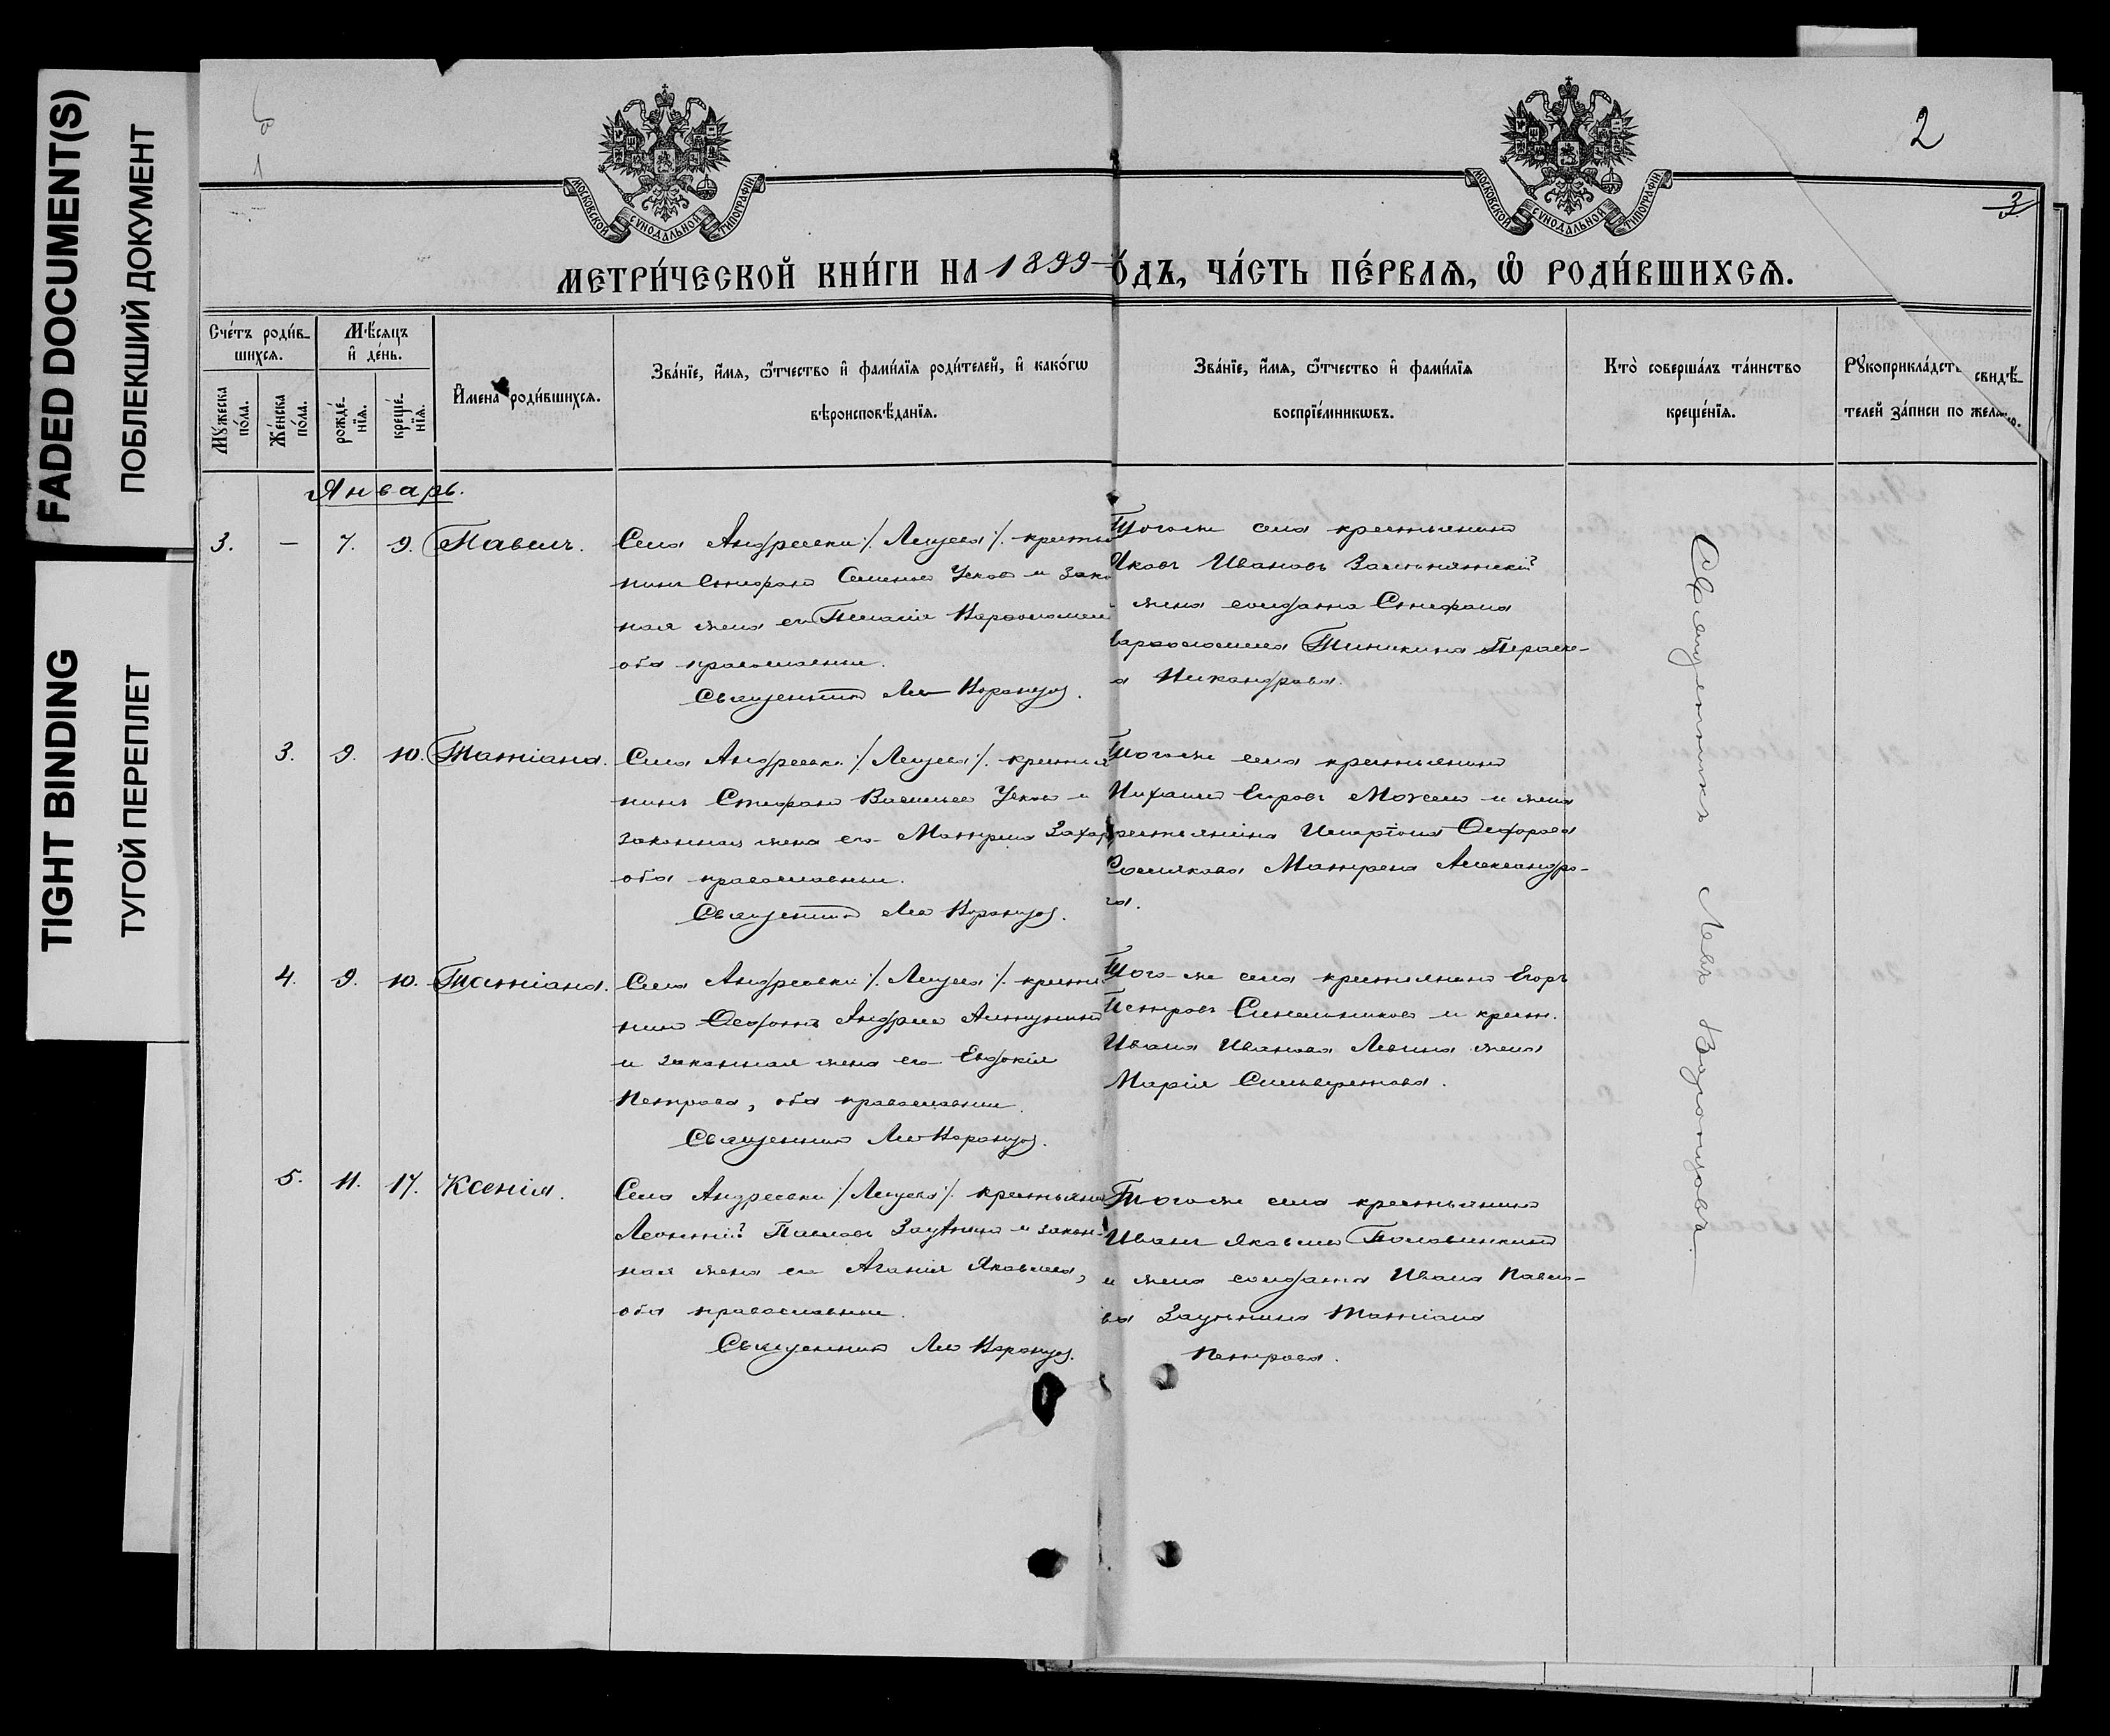 FADED DOCUMENT(S)
ПОБЛЕКШИЙ ДОКУМЕНТ
TIGHT BINDING
ТУГОЙ ПЕРЕПЛЕТ
1
2
3
МОСКОВСКОЙ СУНОДАЛЬНОЙ ТИПОГРАФІИ
МОСКОВСКОЙ СУНОДАЛЬНОЙ ТИПОГРАФІИ
МЕТРИ́ЧЕСКОЙ КНИ́ГИ НА 1899 ОДЪ, ЧА́СТЬ ПЕ́РВАЯ, Ѡ РОДИ́ВШИХСЯ.
Сче́тъ роди́в-
шихся.
Мꙋжеска по́ла.
Же́нска по́ла.
Мѣ́сяцъ
и де́нь.
рожде́-
нїя.
креще́-
нїя.
Имена роди́вшихся.
Зва́нїе, и́мя, ѻ́тчество и фами́лїя роди́телей, и како́гѡ
вѣроисповѣ́данїя.
Зва́нїе, и́мя, ѻ́тчество и фами́лїя
воспрїе́мникѡвъ.
Кто̀ соверша́лъ та́инство
креще́нїя.
Рꙋкоприкла́дст свидѣ́-
телей за́писи по жела
Январь.
3. — 7. 9. Павелъ.
Села Андреевки /: Лещева :/ крестья
нинъ Стефанъ Семеновъ и зако
ная жена его Пелагія Варфоломе
оба православные.
Священникъ Левъ Воронцов.
Тогоже села крестьянинъ
Яковъ Ивановъ
жена солдата Стефана
Варфоломеева Параске-
а Никандрова.
3. 9. 10. Татіана.
Села Андреевки /: Лещева :/ крестья
нинъ Стефанъ Васильевъ и
законная жена его Матрена Захар
оба православные.
Священникъ Левъ Воронцов.
Тогоже села крестьянинъ
Михаилъ и жена
крестьянина Ѳеодорова
Матрона Александро-
ва.
4. 9. 10. Татіана.
Села Андреевки /: Лещева :/ крестья
нинъ Андреевъ
и законная жена его Евдокія
Петрова, оба православные.
Священникъ Левъ Воронцов.
Того-же села крестьянинъ Егоръ
Петровъ Синельниковъ и крест.
Ивана Иванова Левина жена
Марія Сильвестрова.
5. 11. 17. Ксенія.
Села Андреевки /: Лещева :/ крестьянин
Леонтій Павловъ и закон-
ная жена его Агапія Яковлева,
оба православные.
Священникъ Левъ Воронцов.
Тогоже села крестьянинъ
Иванъ Яковлевъ Половинкинъ
и жена солдата Ивана Павло-
ва Татіана
Петрова.
Священникъ Левъ Воронцовъ.